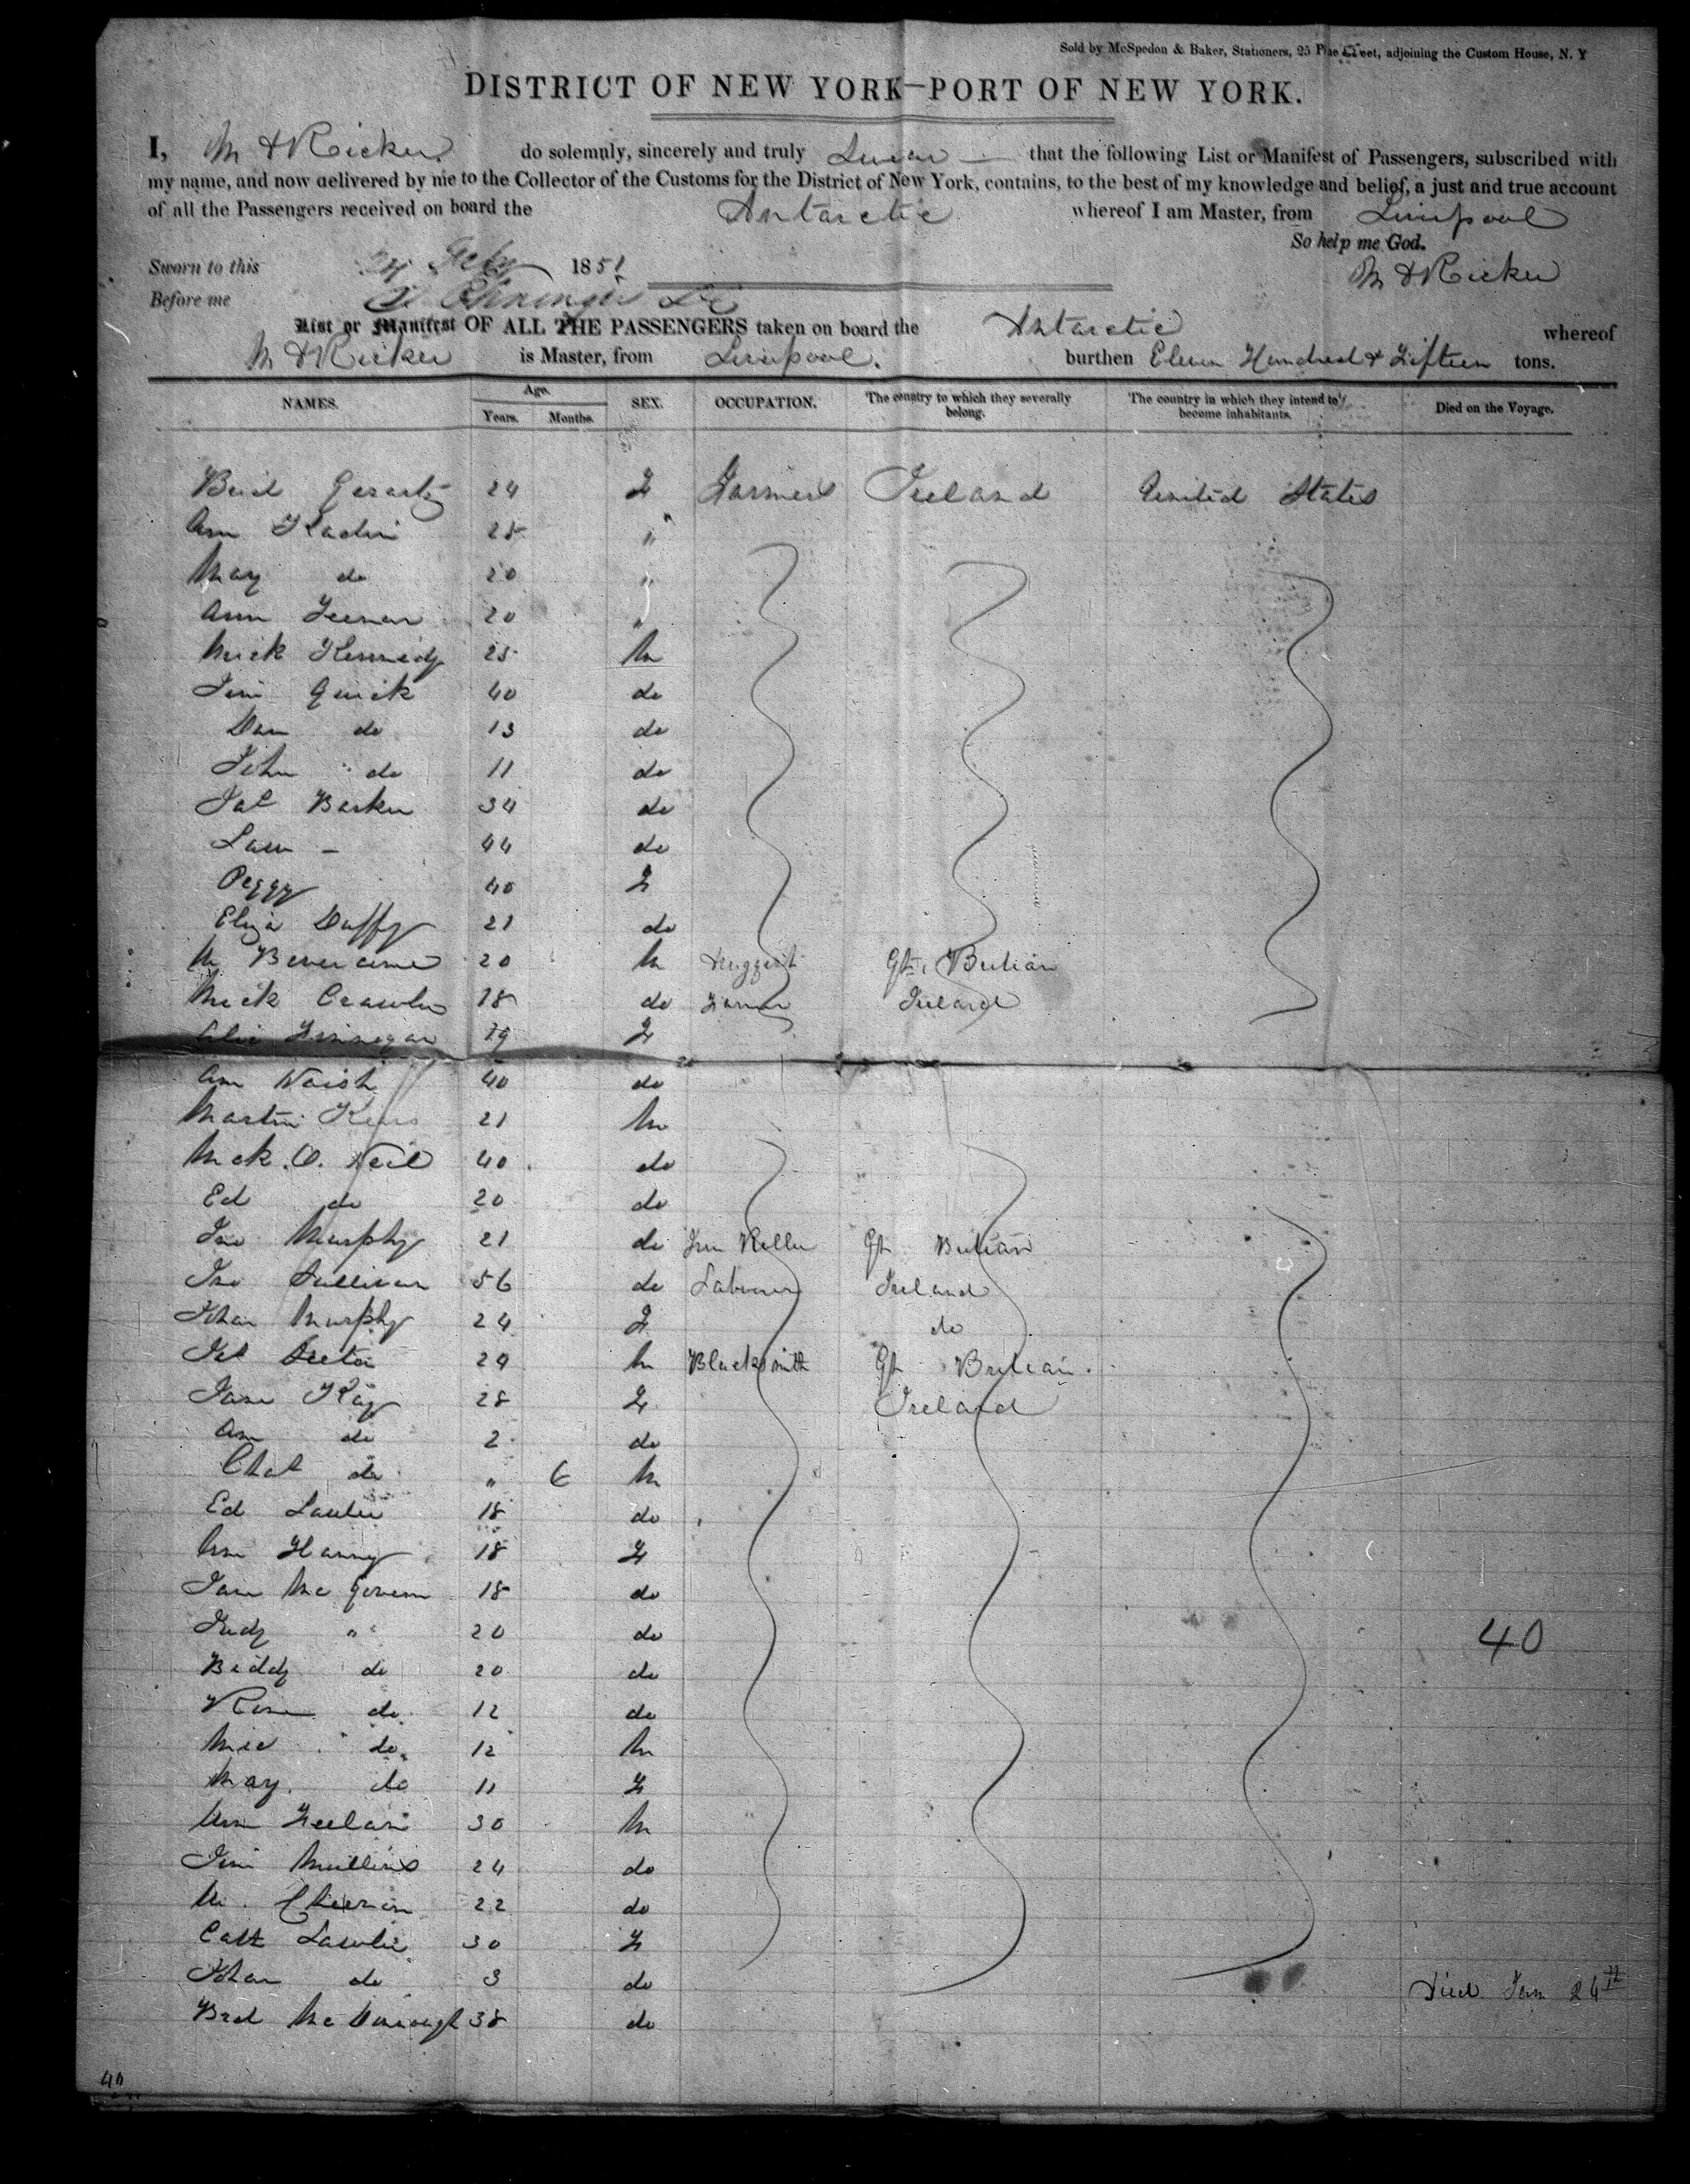 Sold by McSpedon & Baker, Stationers, 25 Pine Street, adjoining the Custom House, N. Y
DISTRICT OF NEW YORK—PORT OF NEW YORK.
I, M & Ricker do solemnly, sincerely and truly Swear — that the following List or Manifest of Passengers, subscribed with
my name, and now delivered by me to the Collector of the Customs for the District of New York, contains, to the best of my knowledge and belief, a just and true account
of all the Passengers received on board the Antarctic whereof I am Master, from Liverpool
So help me God.
Sworn to this 24 Feby 1851
M & Ricker
Before me
List or Manifest OF ALL THE PASSENGERS taken on board the Antarctic whereof
M & Ricker is Master, from Liverpool. burthen Eleven Hundred & Fifteen tons.
NAMES. Age. Years. Months. SEX. OCCUPATION. The country to which they severally belong. The country in which they intend to become inhabitants. Died on the Voyage.
Brid Gerarty 24 F Farmers Ireland United States
Ann 25 "
Mary do 20 "
Ann Feenan 20 "
Mick Kennedy 25 M
Jim Quick 40 do
Dan do 13 do
John do 11 do
Pat Barker 34 do
Law - 44 do
Peggy 40 F
Eliza Duffy 21 do
M 20 M Gt. Britian
Mick Crawley 18 do Farmer Ireland
Finnegan 19 F
Ann Naish 40 do
Martin Kerns 21 M
Mck. O. Neil 40 do
Ed do 20 do
Jno Murphy 21 do Gt Britian
Jno Sullivan 56 do Labourer Ireland
Johan Murphy 24 F do
Pat 24 M Blacksmith Gt Britian.
Jane Kay 28 F Ireland
Ann do 2 do
Chas do " 6 M
Ed Lawler 18 do
Ann Hanny 18 F
Jane Mc Govern 18 do
Judy " 20 do
Biddy do 20 do
Rose do 12 do
Mic do 12 M
Mary do 11 F
Wm Feelan 30 M
Jim Mullins 24 do
M. 22 do
Cath Lawler 30 F
Johan do 3 do Died Jan 24th
Brid Mc Donough 38 do
40
40